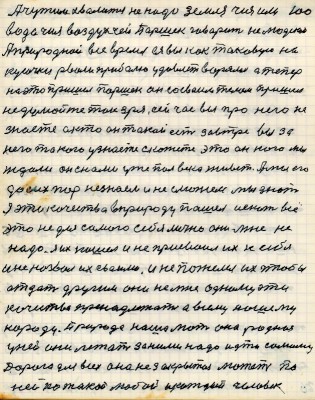 А чужим хвалится не надо земля чия или
вода чия воздух чей Паршек говарит не моя
А природной все время я был как таковую на
кулочки рвали прибалю удовлетваряли а теперь
на это пришел Паршек он со своими телом пришел
не думайте там зря, сей час вы про него не
знаете а кто он такой есть завтра вы за
него такого узнаете скажете это он кого мы
ждали он с нами уже пол века живет. А мы его
до сих пор не знаем и не сможем мы знать
Я эти качества в природу пашел искать всё
это не для самого себя лично они мне не
надо. Я их нашел и не присвоил их к себе
и не назвал их своими, и не пожелал их чтобы
отдать другим они не мне одному эти
качества пренадлежат а всему нашему
народу. Природа наша мать она родная
у ней они лежат за ними надо идти самому
Дорога для всех она не закрытая можеть по
ней по такой любой и каждый человек